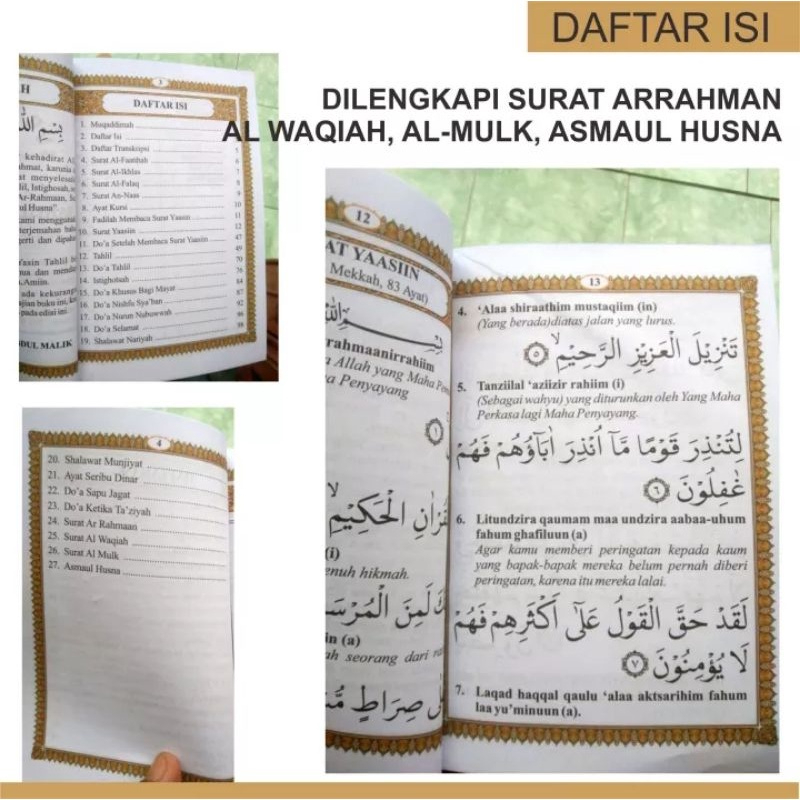 DAFTAR ISI
DILENGKAPI SURAT ARRAHMAN
AL WAQIAH, AL-MULK, ASMAUL HUSNA
3
DAFTAR ISI
1. Muqaddimah
2. Daftar Isi
3. Daftar Transkripsi 5
4. Surat Al-Faatihah 6
5. Surat Al-Ikhlas 7
6. Surat Al-Falaq 8
7. Surat An-Naas 9
8. Ayat Kursi 10
9. Fadilah Membaca Surat Yaasiin 11
10. Surat Yaasiin 12
11. Do'a Setelah Membaca Surat Yaasiin 47
12. Tahlil 49
13. Do'a Tahlil 70
14. Istighotsah 76
15. Do'a Khusus Bagi Mayat 84
16. Do'a Nishfu Sya'ban 87
17. Do'a Nurun Nubuwwah 92
18. Do'a Selamat 98
19. Shalawat Nariyah 99
kehadirat Al
ahmat, karunia
at menyelesai
lil, Istighosah,
Ar-Rahmaan, S
l Husna".
kami menggunat
terjemahan bah
gerti dan dipah
Yasin Tahlil
ma dan menda
.Amiin.
ada kekurang
ajian buku ini,
pada edisi ini.
DUL MALIK
4
20. Shalawat Munjiyat
21. Ayat Seribu Dinar
22. Do'a Sapu Jagat
23. Do'a Ketika Ta'ziyah
24. Surat Ar Rahmaan
25. Surat Al Waqiah
26. Surat Al Mulk
27. Asmaul Husna
12
AT YAASIIN
Mekkah, 83 Ayat)
rahmaanirrahiim
a Allah yang Maha
a Penyayang
١
قُرْاٰنِ الْحَكِيْمِ
(i)
enuh hikmah.
لَمِنَ الْمُرْسَ
in (a)
ah seorang dari
عَلٰى صِرَاطٍ
13
4. 'Alaa shiraathim mustaqiim (in)
(Yang berada)diatas jalan yang lurus.
تَنْزِيْلَ الْعَزِيْزِ الرَّحِيْمِۙ ٥
5. Tanziilal 'aziizir rahiim (i)
(Sebagai wahyu) yang diturunkan oleh Yang Maha
Perkasa lagi Maha Penyayang.
لِتُنْذِرَ قَوْمًا مَّآ اُنْذِرَ اٰبَاۤؤُهُمْ فَهُمْ
غٰفِلُوْنَ ٦
6. Litundzira qaumam maa undzira aabaa-uhum
fahum ghafiluun (a)
Agar kamu memberi peringatan kepada kaum
yang bapak-bapak mereka belum pernah diberi
peringatan, karena itu mereka lalai.
لَقَدْ حَقَّ الْقَوْلُ عَلٰٓى اَكْثَرِهِمْ فَهُمْ
لَا يُؤْمِنُوْنَ ٧
7. Laqad haqqal qaulu 'alaa aktsarihim fahum
laa yu'minuun (a).